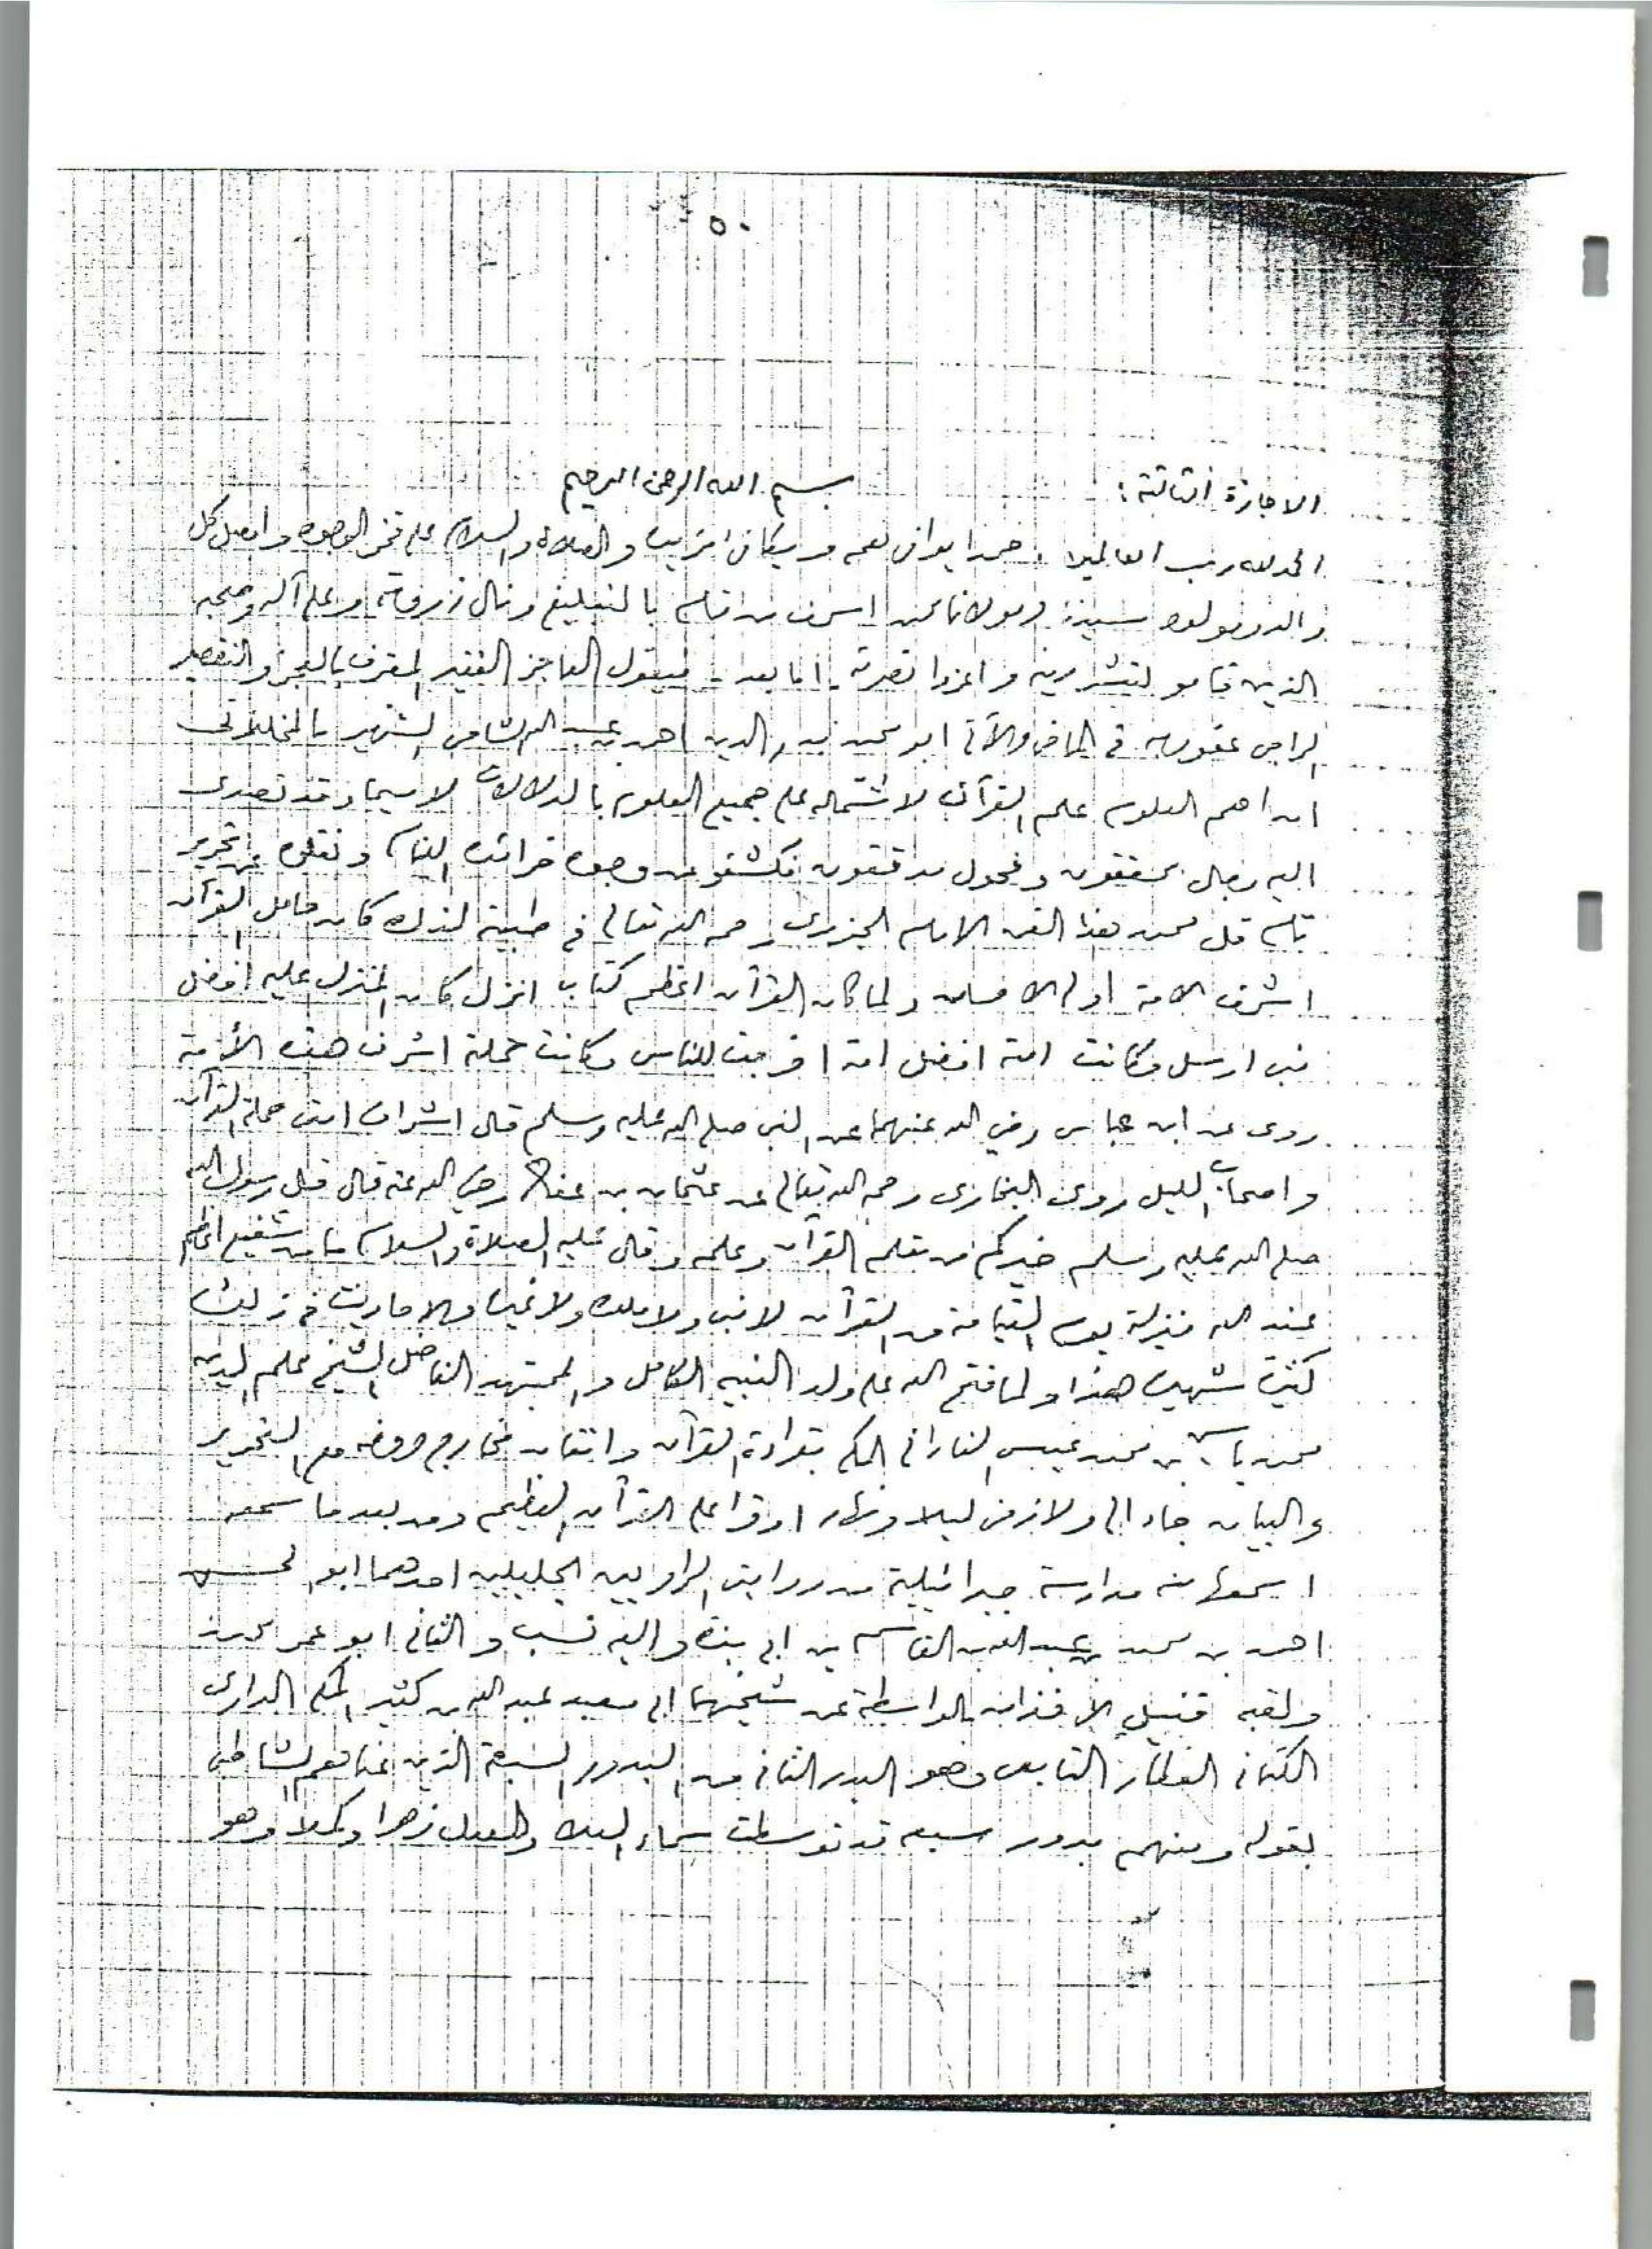 ٥٠
الاجازة الثالثة :
بسم الله الرحمن الرحيم
الحمد لله رب العالمين حمدا يوافي نعمه ويكافئ مزيده والصلاة والسلام على فخر الوجود واصل كل
والد ومولود سيدنا ومولانا محمد اشرف من قام بالتبليغ ونال ذروته وعلى آله وصحبه
الذين قاموا لنشر دينه واعزوا نصرته . اما بعد . فيقول العاجز الفقير المعترف بالعجز والتقصير
الراجي عفو ربه في الماضي والآتي ابو محمد بدر الدين احمد بن عبد الشامي الشهير بالمخللاتي
ان اهم العلوم علم القرآن لاشتماله على جميع العلوم بالدلالات لا سيما وقد تصدى
اليه رجال محققون وفحول مدققون فكشفوا عن وجوه خرائده اللثام ونقلوه عن تحرير
تام قال محمد هذا الفن الامام الجزري رحمه الله تعالى في طيبته لذلك كان حامل القرآن
اشرف الامة اولي الاحسان ولما كان القرآن اعظم كتاب انزل كان المنزل عليه افضل
نبي ارسل وكانت امته افضل امة اخرجت للناس وكانت حملته اشرف هذه الأمة
روى عن ابن عباس رضي الله عنهما عن النبي صلى الله عليه وسلم قال اشراف امتي حملة القرآن
واصحاب الليل روى البخاري رحمه الله تعالى عن عثمان بن عفان رضي الله عنه قال قال رسول الله
صلى الله عليه وسلم خيركم من تعلم القرآن وعلمه وقال عليه الصلاة والسلام ما من شفيع اعظم
عند الله منزلة يوم القيامة من القرآن لا نبي ولا ملك ولا غيره والاحاديث في ذلك
كثيرة شهيرة هذا ولما فتح الله على ولد النبيه الكامل والمجتهد الفاضل الشيخ علم الدين
محمد ياسين بن محمد عيسى الفاداني المكي بقراءة القرآن واتقان مخارج حروفه مع التحرير
والبيان جاء الي ولازمني ليلا ونهارا وقرأ علي القرآن العظيم ومن بعد ما سمعه
اسمعها منه مدارسة جبرائيلية من روايتي الراويين الجليلين احدهما ابو الحسن
احمد بن محمد بن عبد الله بن القاسم بن ابي بزة واليه نسب والثاني ابو عمر محمد
ولقبه قنبل الآخذان بالواسطة عن شيخهما ابي معبد عبد الله بن كثير المكي الداري
الكناني العطار التابعي وهو البدر الثاني من البدور السبعة الذين عناهم الشاطبي
بقوله ومنهم بدور سبعة قد توسطت سماء العلا والعدل زهرا وكملا وهو